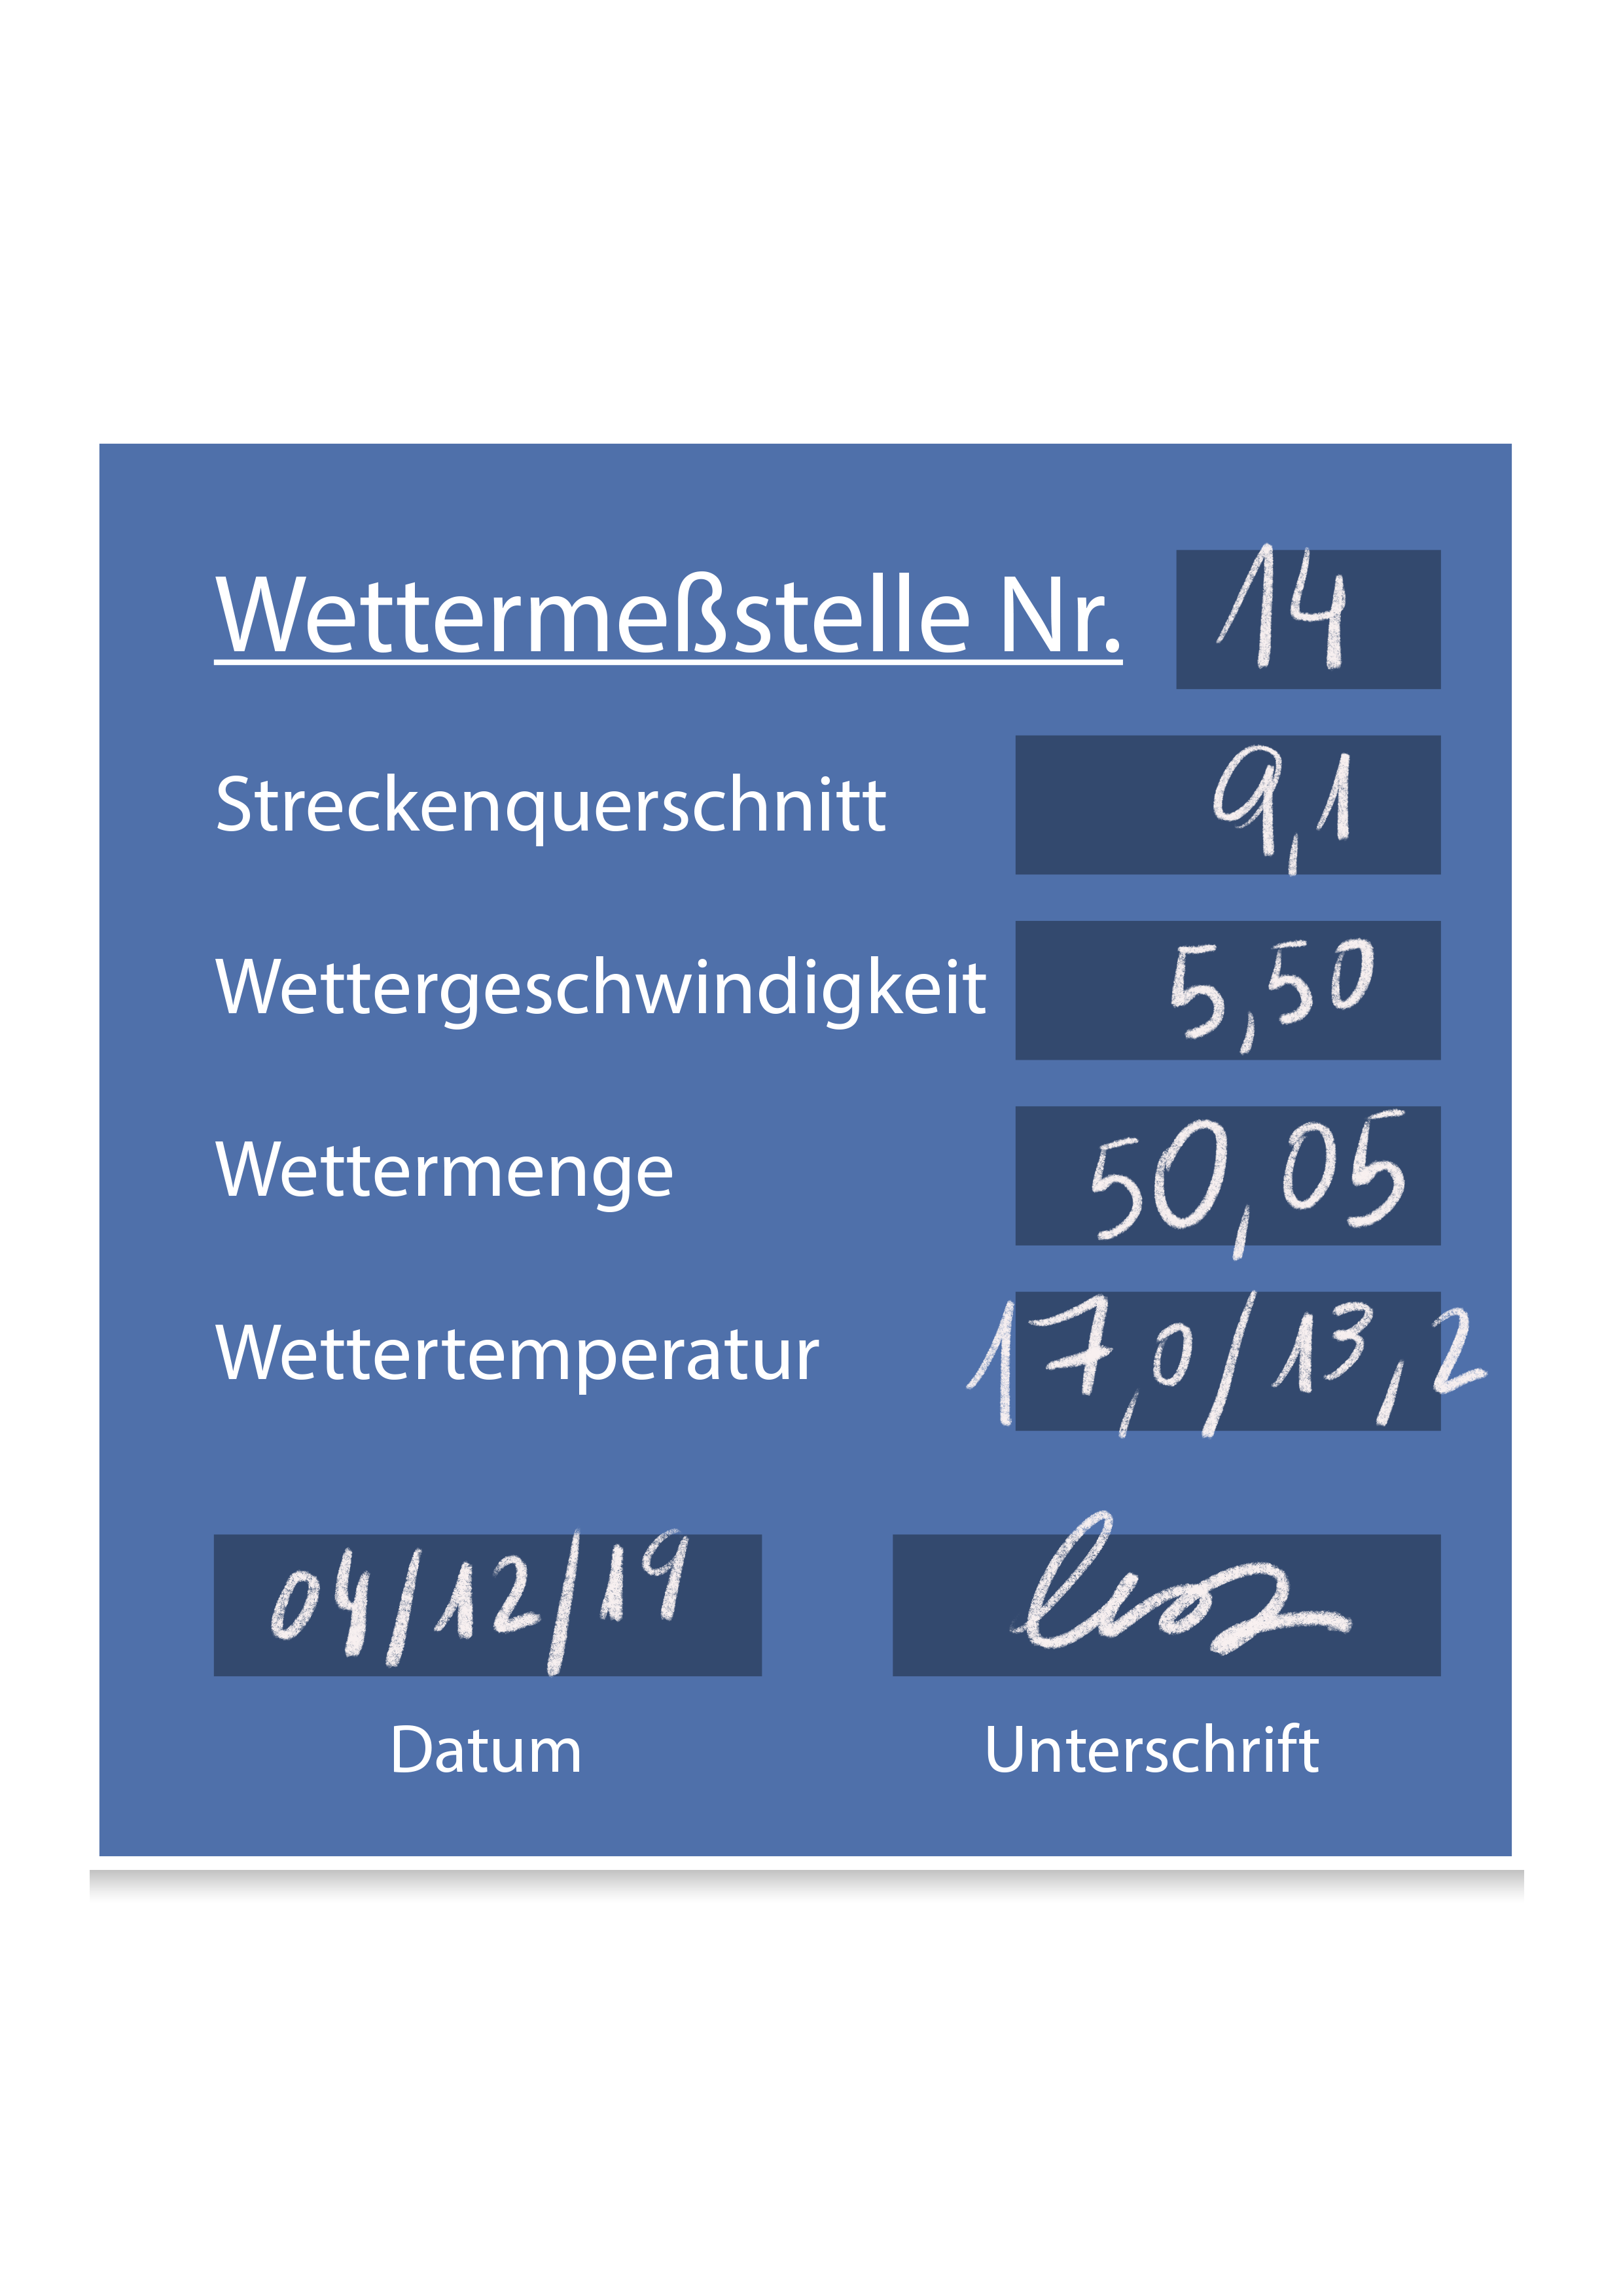 Wettermeßstelle Nr. 14
Streckenquerschnitt 9,1
Wettergeschwindigkeit 5,50
Wettermenge 50,05
Wettertemperatur 17,0/13,2
04/12/19
Datum Unterschrift